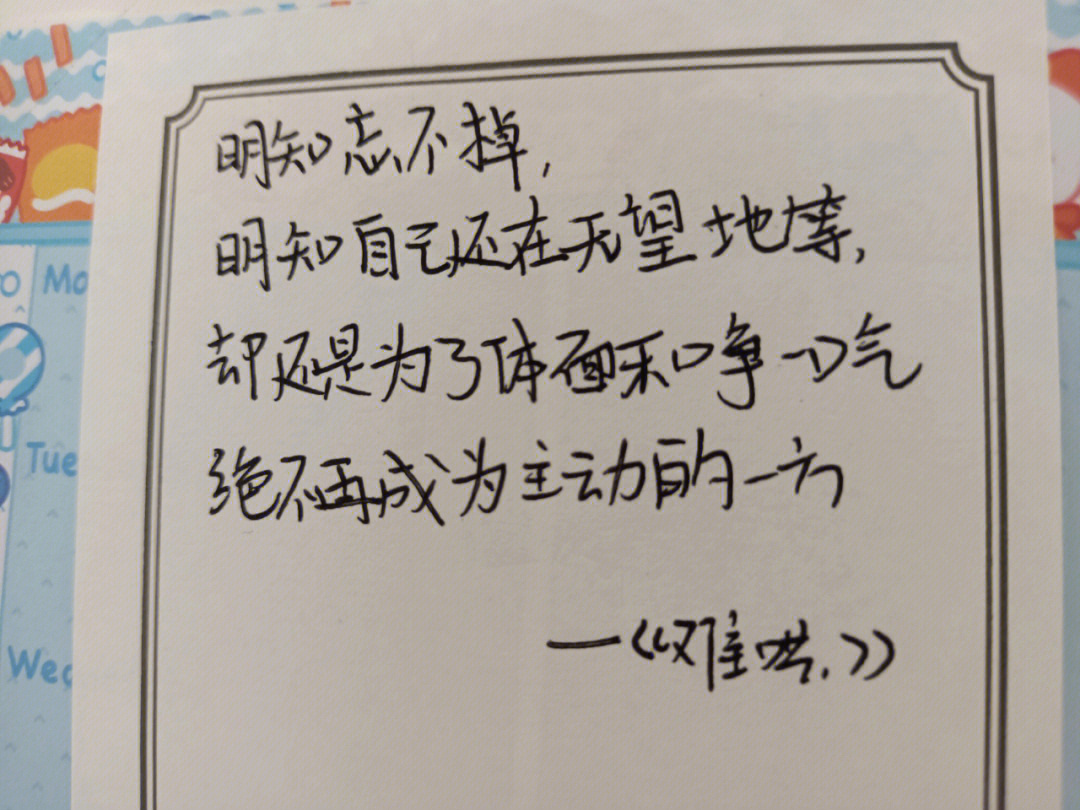 明知忘不掉,
明知自己还在无望地等,
却还是为了体面和争一口气
绝不再成为主动的一方
—《难哄.》
Mo
Tue
Wed